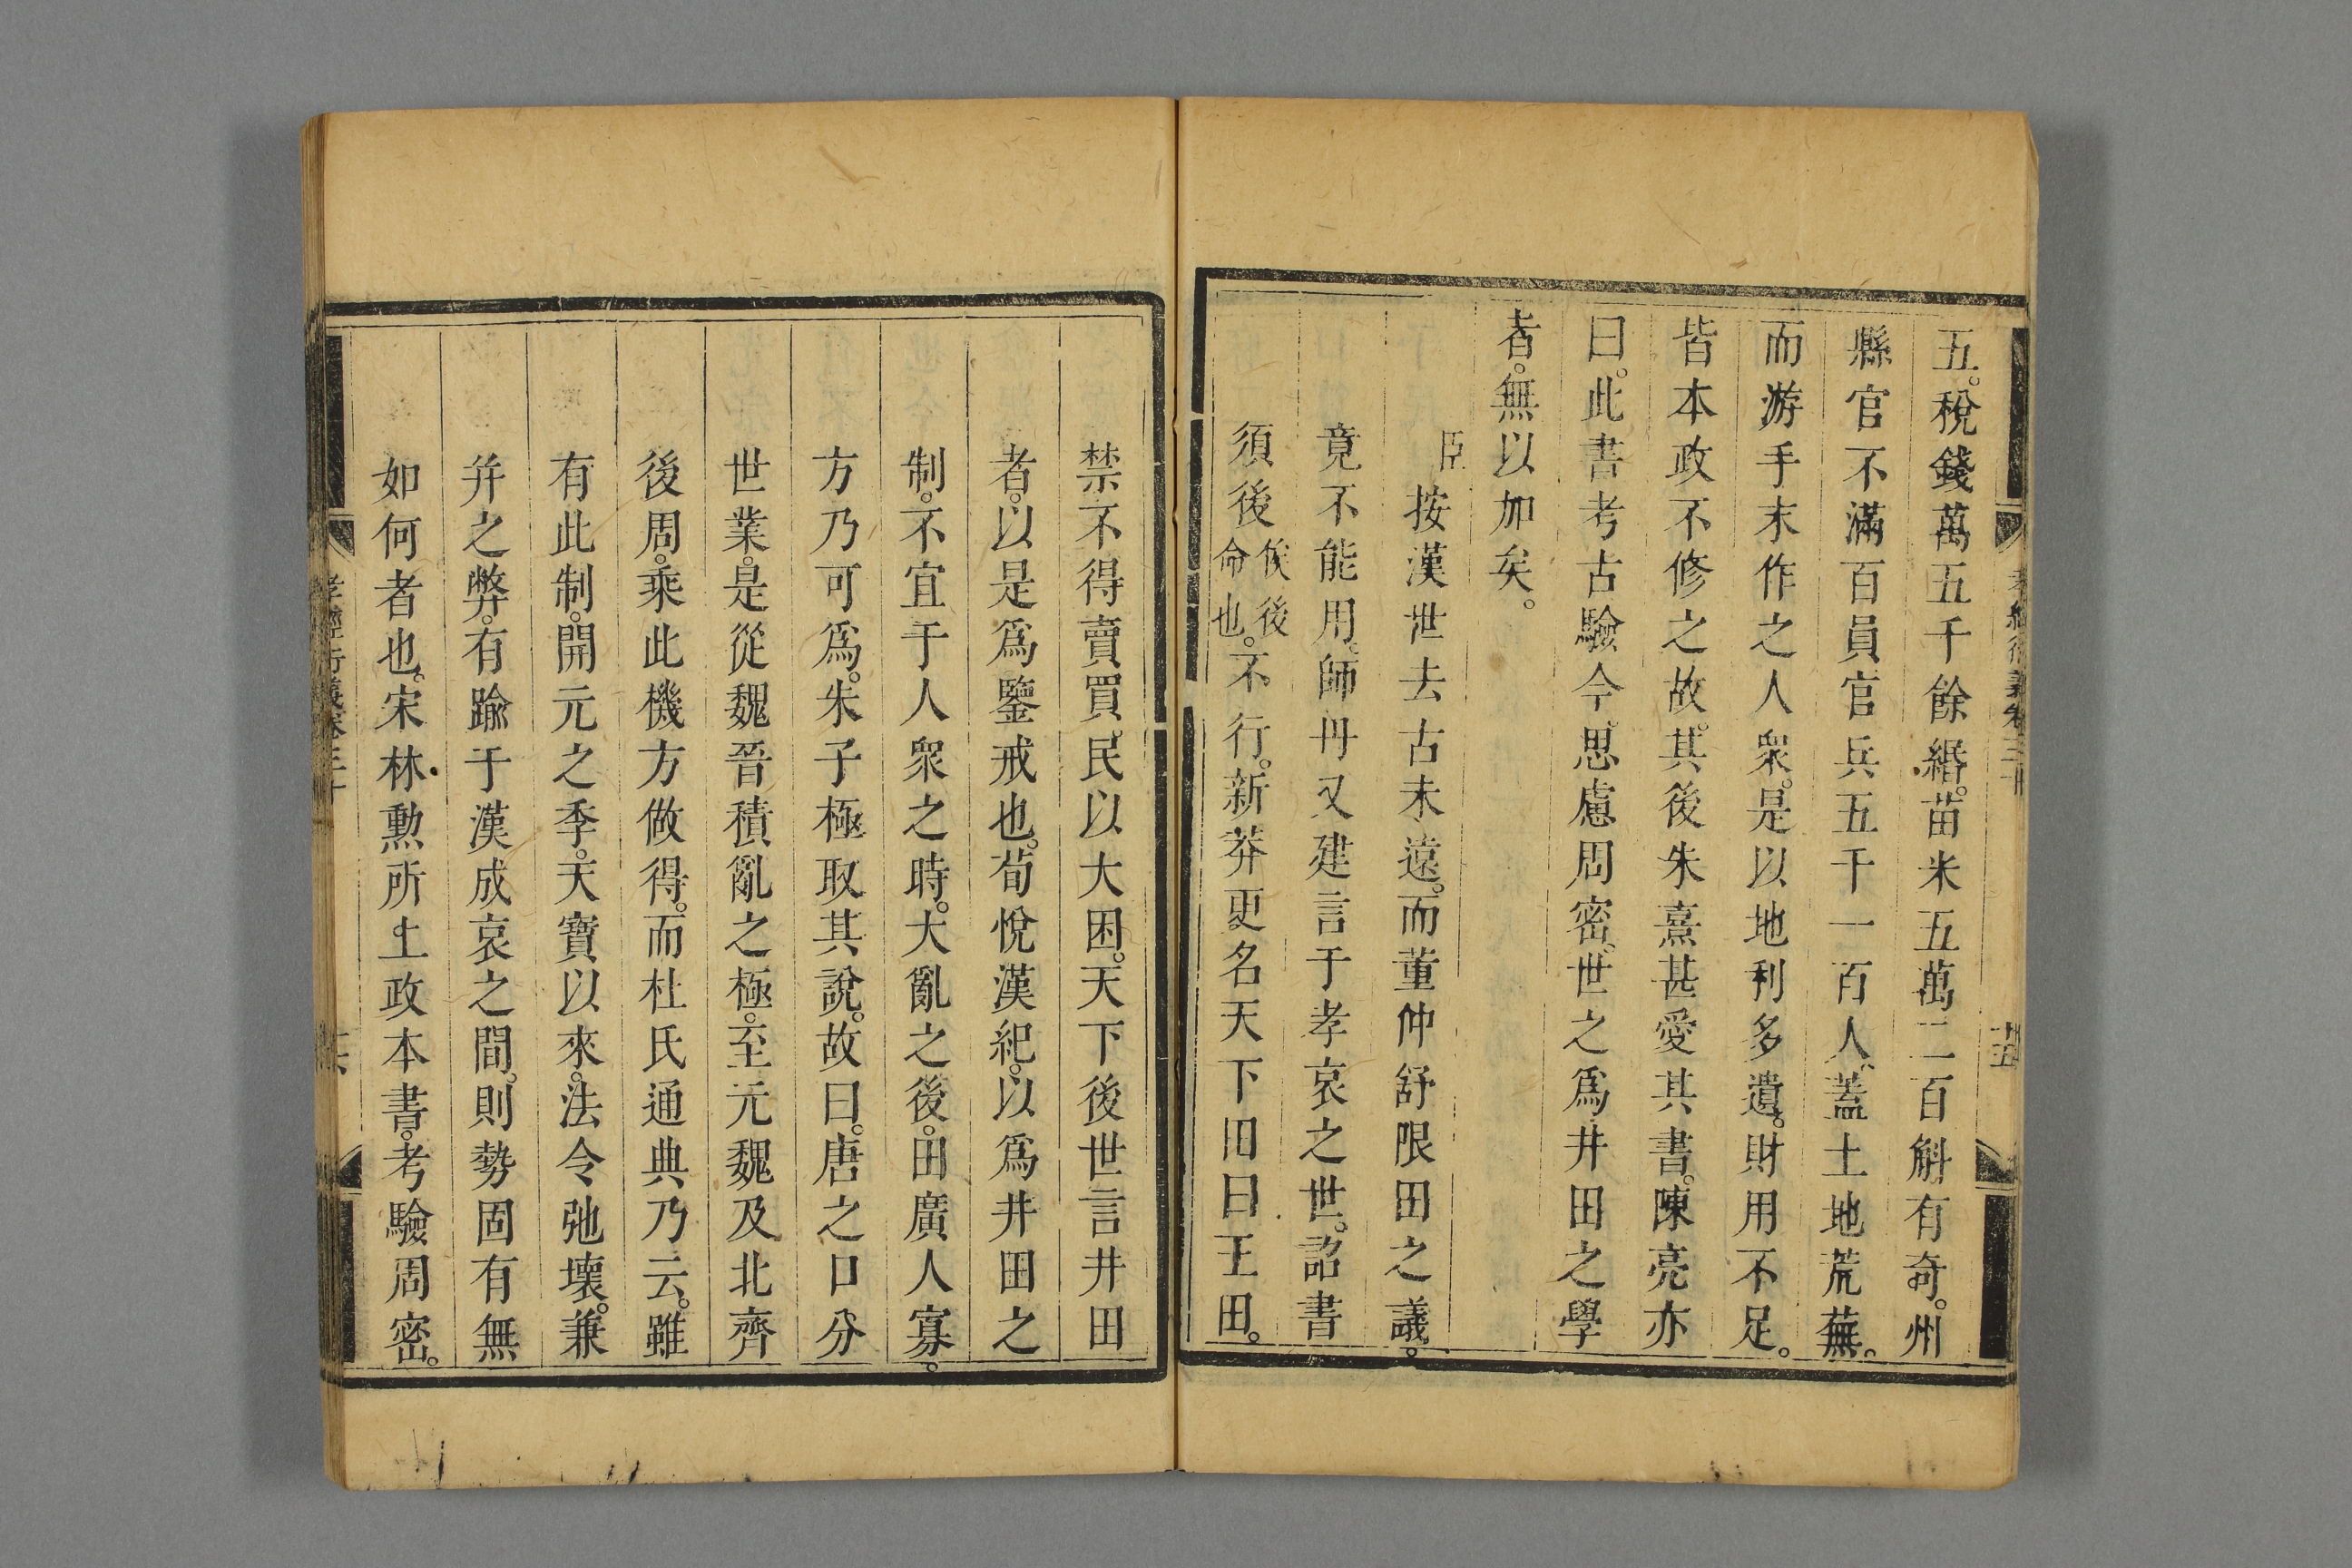 五。稅錢萬五千餘緡。苗米五萬二百斛有奇。州
縣官不滿百員。官兵五千一百人。蓋土地荒蕪。
而游手末作之人衆。是以地利多遺。財用不足。
皆本政不修之故。其後朱熹甚愛其書。陳亮亦
曰。此書考古驗今。思慮周密。世之爲井田之學
者。無以加矣。
臣按漢世去古未遠。而董仲舒限田之議。
竟不能用。師丹又建言于孝哀之世。詔書
須後俟後命也。不行。新莽更名天下田曰王田。
禁不得賣買。民以大困。天下後世言井田
者。以是爲鑒戒也。荀悅漢紀。以爲井田之
制。不宜于人衆之時。大亂之後。田廣人寡。
方乃可爲。朱子極取其說。故曰。唐之口分
世業。是從魏晉積亂之極。至元魏及北齊
後周。乘此機方做得。而杜氏通典乃云。雖
有此制。開元之季。天寶以來。法令弛壞。兼
并之弊。有踰于漢成哀之間。則勢固有無
如何者也。宋林勲所上政本書。考驗周密。
孝經衍義卷三十